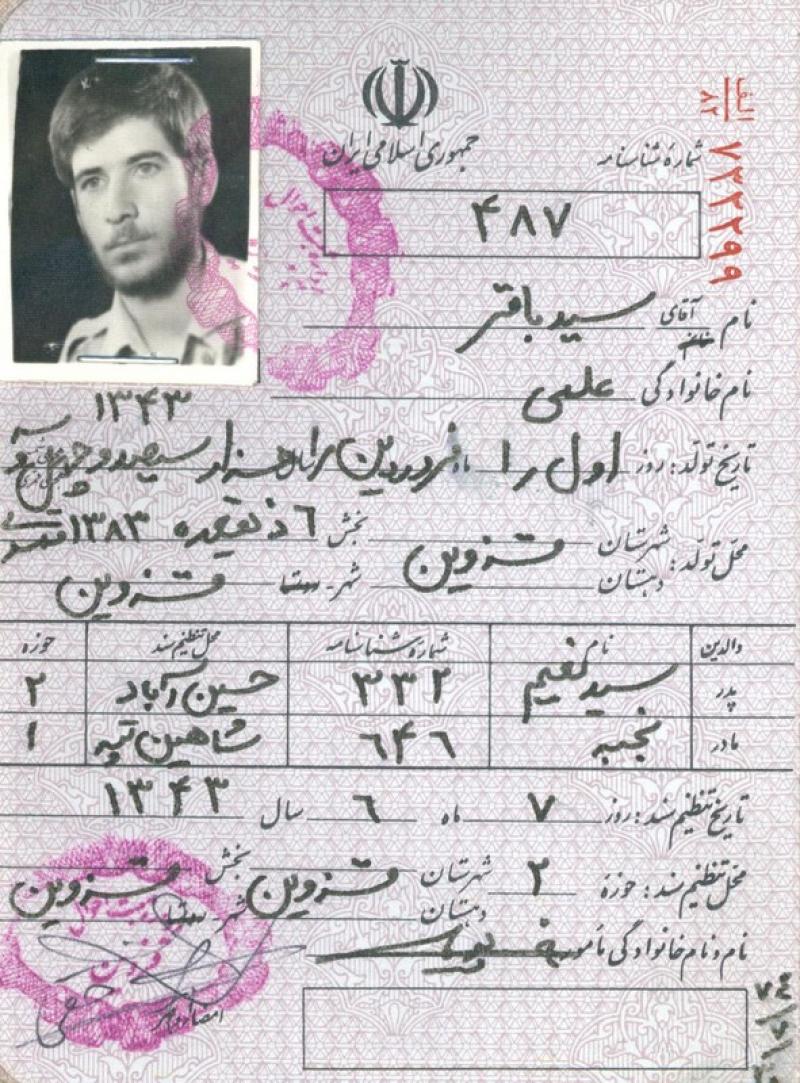 جمهوری اسلامی ایران
الف
۸۲
۷۳۲۲۹۹
شمارهٔ شناسنامه
۴۸۷
نام آقای سید باقر
نام خانوادگی علمی
۱۳۴۳
تاریخ تولد: روز اول را ماه فروردین هزار سیصد و چهل و
۶ ذیقعده ۱۳۸۳ قمری
محل تولد: شهرستان قزوین بخش
دهستان شهر قزوین
والدین نام شمارهٔ شناسنامه محل تنظیم سند حوزه
پدر سید مقیم ۳۳۲ حسین آباد ۲
مادر نجیبه ۶۴۶ شاهین تپه ۱
تاریخ تنظیم سند: روز ۷ ماه ۶ سال ۱۳۴۳
محل تنظیم سند: حوزهٔ ۲ شهرستان قزوین بخش قزوین
دهستان شهر
نام و نام خانوادگی مأمور
امضاء و مهر